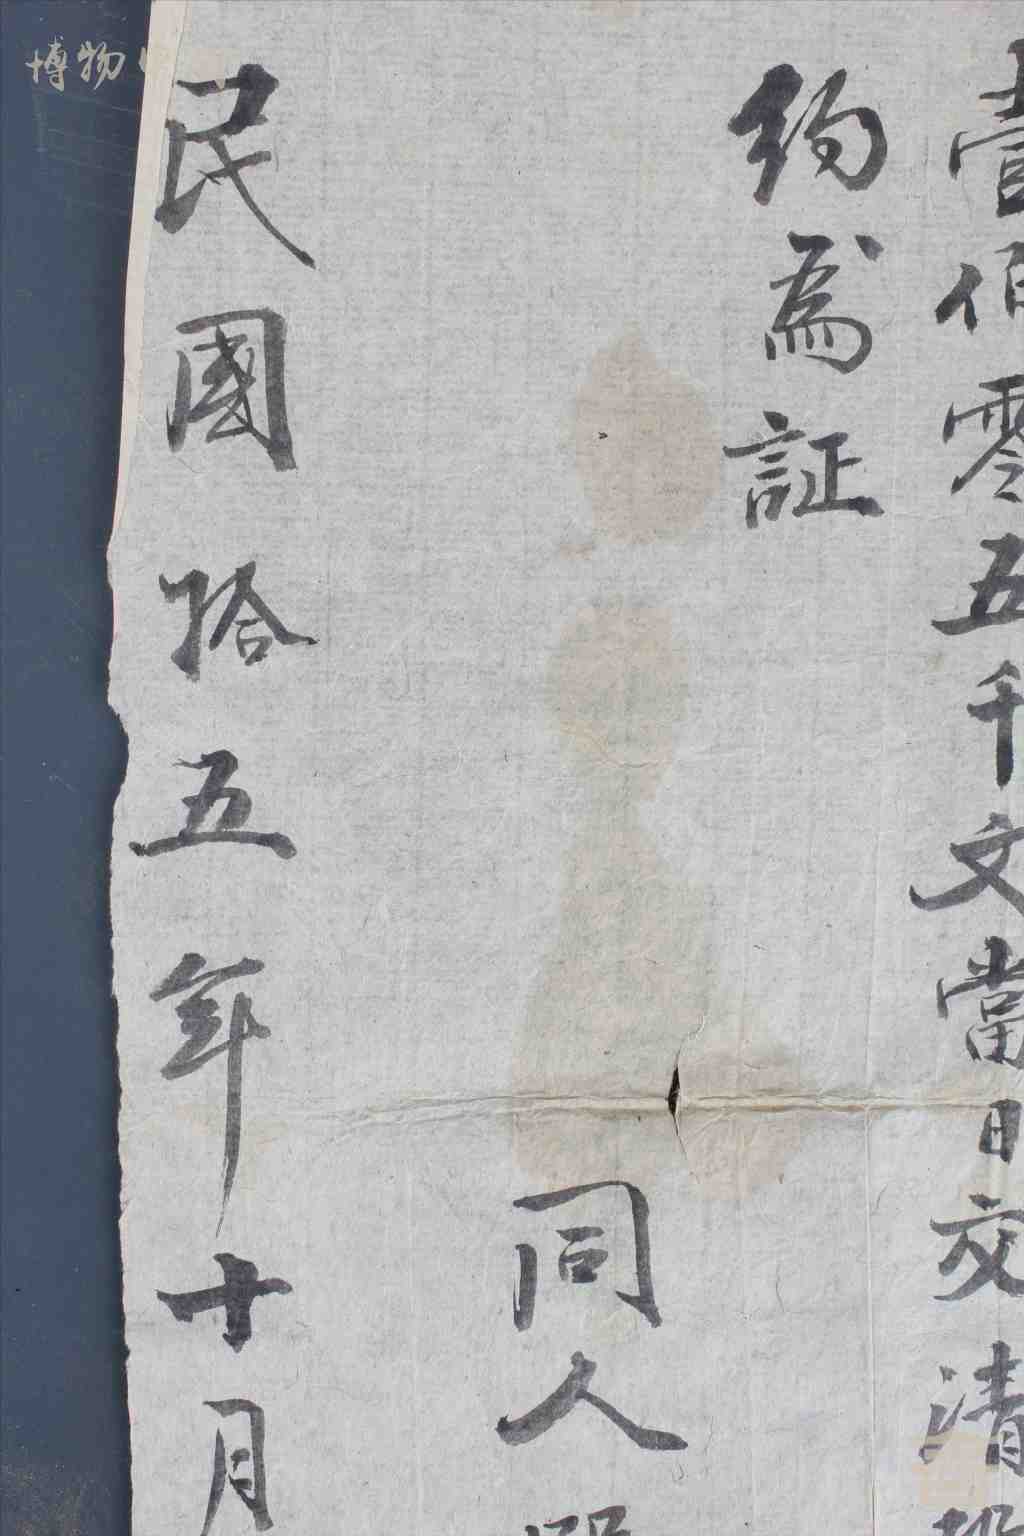 壹佰零五千文當日交清
約為証
同人
民國拾五年十月
博物